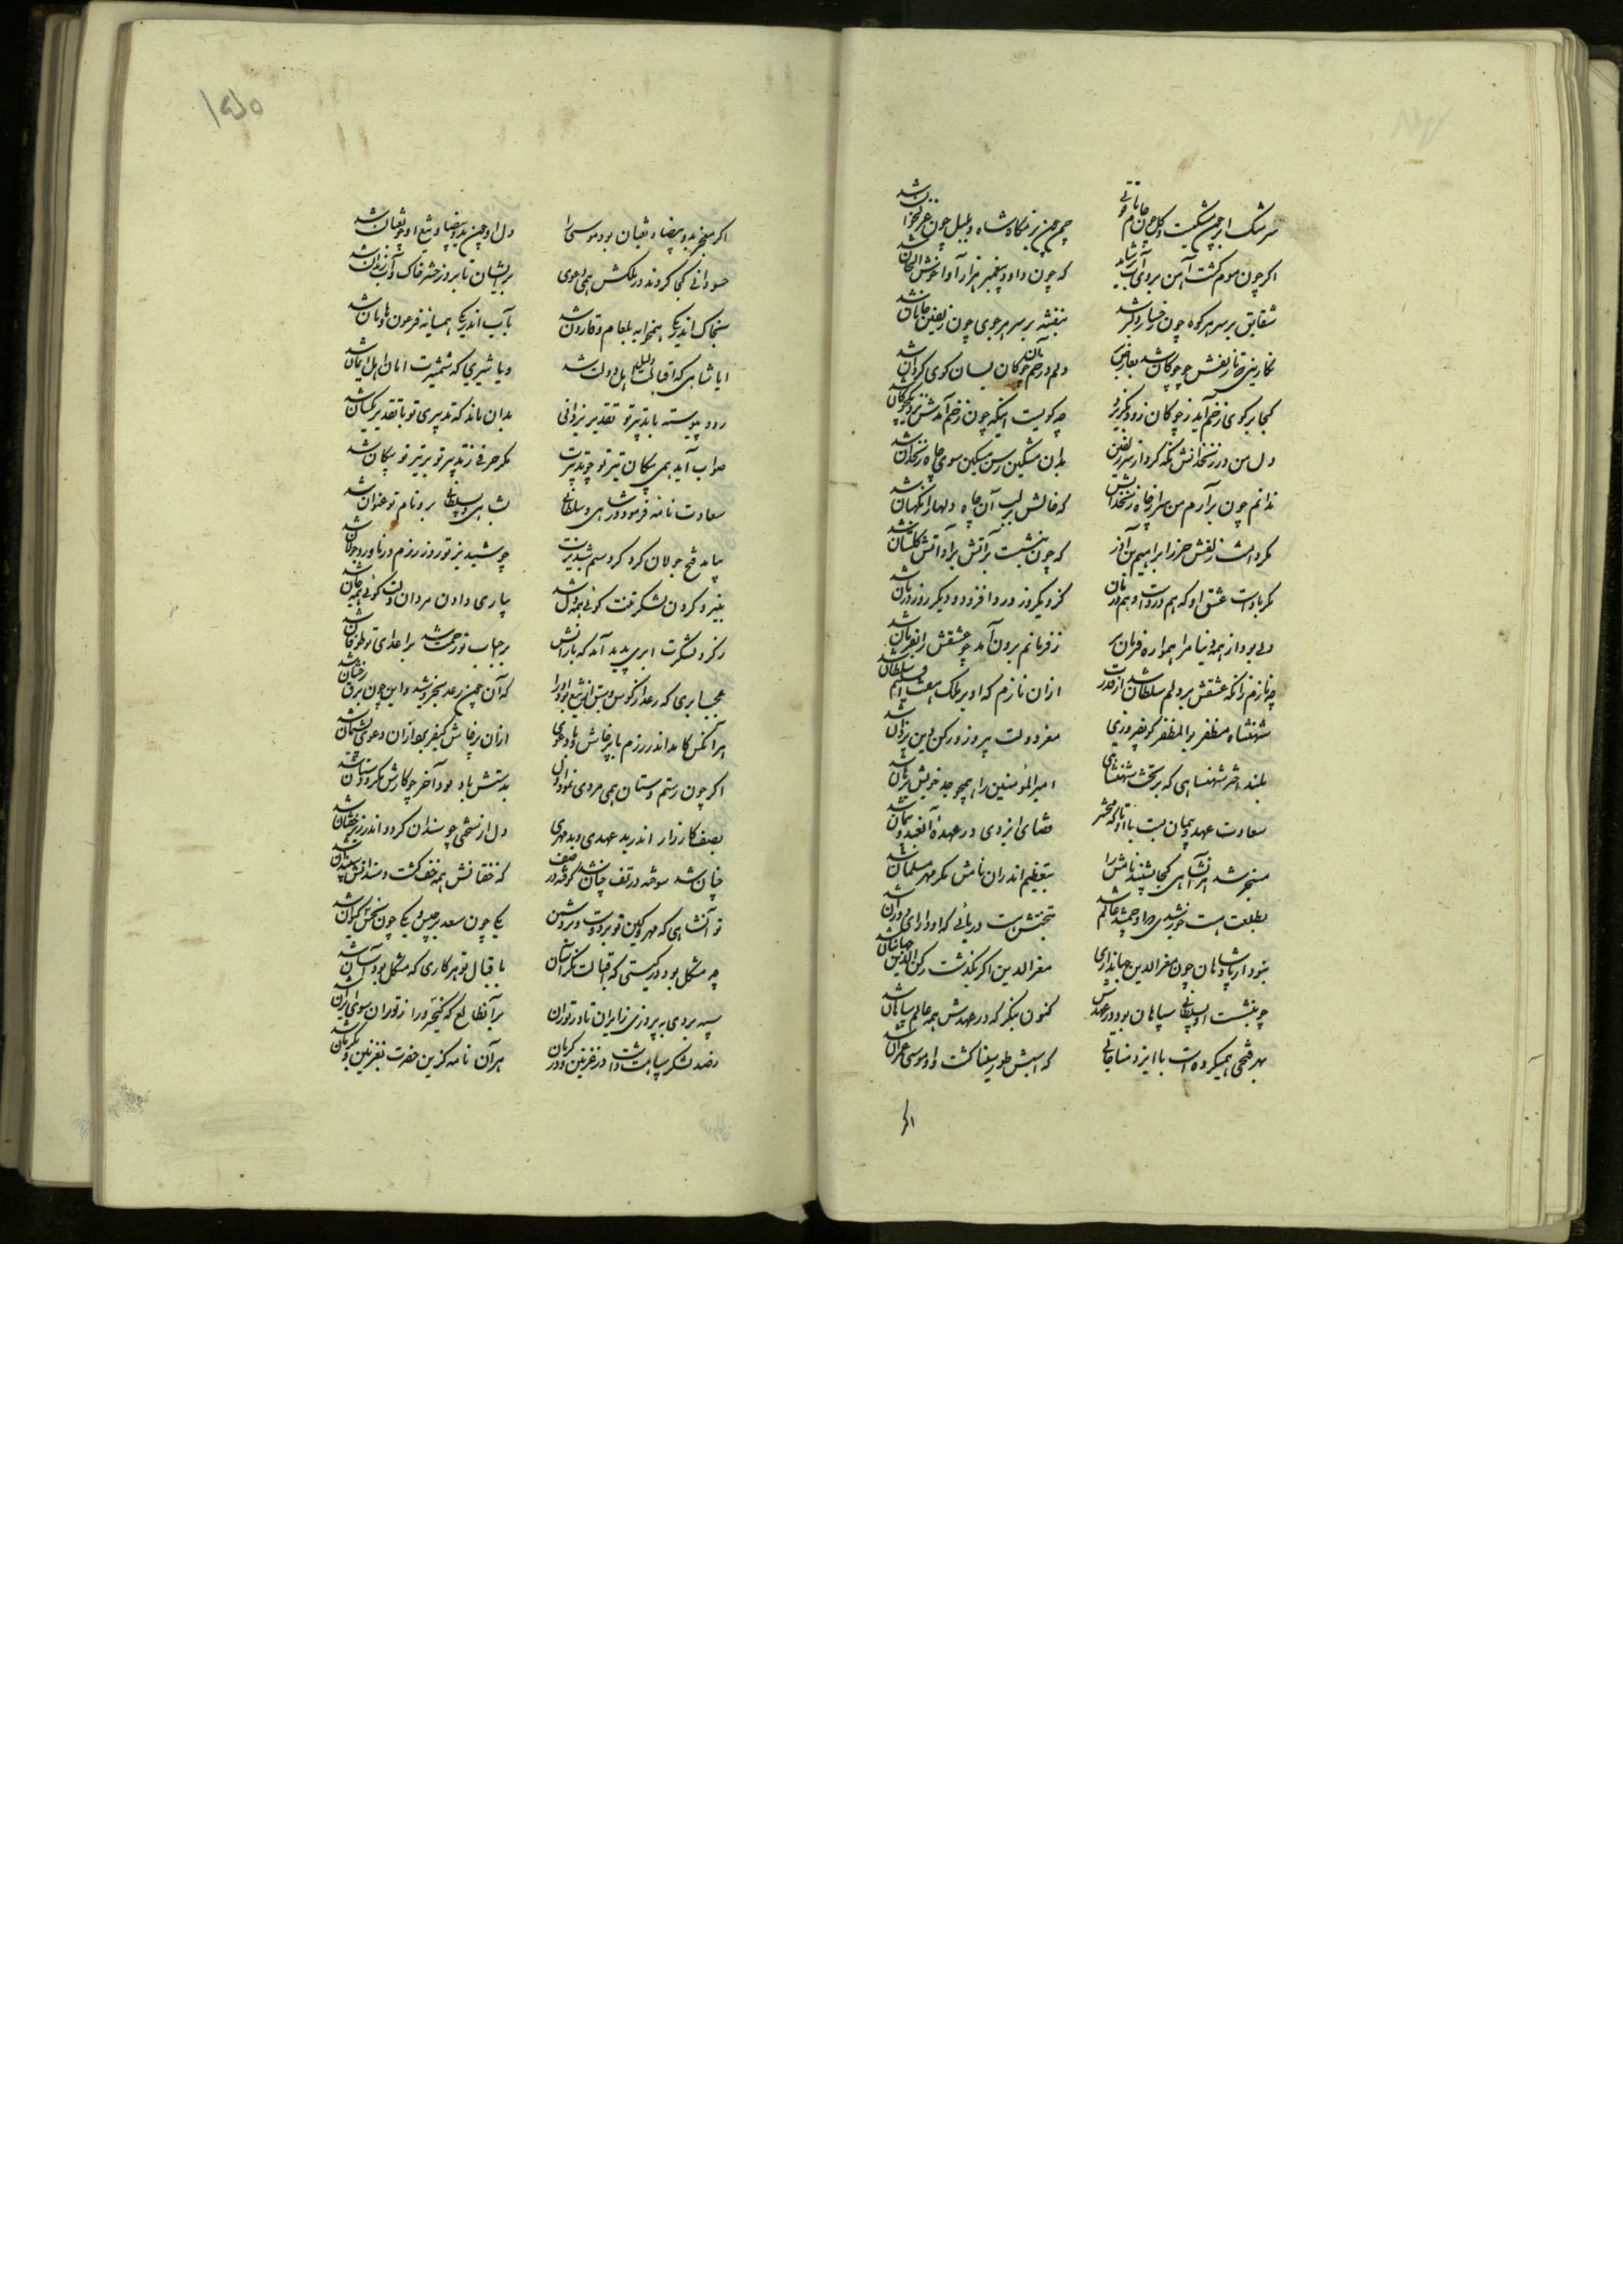 سرشک ابر چون مشکست و گل چون جام
چمن چون بزمگاه شاه و بلبل چون غزلخوان شد
اگر چون موم گشت آهن بروی آب
که چون داود پیغمبر هزار آوا خوش الحان شد
شقایق بر سر هر کوه چون رخسار دلبر شد
بنفشه بر سر هر جوی چون زلفین جانان شد
نگارینی که تا زلفش چو چوکان شد بعارض بر
دلم در خم چوکان بسان کوی کردان شد
کجا بر کوی زخم آید ز چوکان زود بگریزد
چه کویست اینکه چون زخم آمدش نزدیک چوکان شد
دل من در زنخدانش نگه کرد از سر زلفین
بدان مشکین رسن مسکین سوی چاه زنخدان شد
ندانم چون برآرم من سر از چاه زنخدانش
که خالش بر لب آن چاه دلها را نگهبان شد
مگر داشت زلفش حرز ابراهیم بن آذر
که چون بنشست بر آتش برو آتش گلستان شد
مگر باد است عشق او که هم درد است و هم درمان
کزو یکروز درد افزود و دیگر روز درمان شد
دلی بود از همه دنیا مرا همواره فرمان بر
ز فرمانم برون آمد چو عشقش را بفرمان شد
چه نازم زانکه عشقش بر دلم سلطان شد از قدرت
ازان نازم که او بر ملک هفت اقلیم سلطان شد
شهنشاه مظفر بوالمظفر کو بفیروزی
معز دولت پیروز و رکن دین یزدان شد
بلند اختر شهنشاهی که بر تخت شهنشاهی
امیرالمؤمنین را همچو جد خویش برهان شد
سعادت عهد و پیمان بست با او تا که محشر
قضای ایزدی در عهده آنعهد و پیمان شد
مسخر شد هر آنشاهی کجا بشنید نامش را
بتعظیم اندران نامش مگر مهر سلیمان شد
بطلعت هست خورشیدی کزو جمشید عالم شد
ببخشش هست دریائی که او دارای دوران شد
نبود از پادشاهان چون معزالدین جهانداری
معزالدین اگر بگذشت رکن الدین جهانبان شد
چو بنشست او بسلطانی سپاهان بود در عهدش
کنون بنگر که در عهدش همه عالم سپاهان شد
بهر فتحی همیکرده است با ایزد مناجاتی
که اسبش طور سینا گشت و او موسی عمران شد
اگر
اگر معجز ید بیضا و ثعبان بود موسی را
دل او چون ید بیضا و تیغ او چو ثعبان شد
حسودانی کجا کردند در ملکش همی دعوی
بر ایشان تا بروز حشر خاک و آب زندان شد
بخاک اندر یکی همخوابه بلعام و قارون شد
بآب اندر یکی همسایه فرعون و هامان شد
ایا شاهی که اقبالت دلیل اهل دولت شد
و یا شیری که شمشیرت امان اهل ایمان شد
رود پیوسته با تدبیر تو تقدیر یزدانی
بدان ماند که تدبیری تو با تقدیر یکسان شد
صواب آید همی پیکان تیر تو چو تدبیرت
مگر حرفی ز تدبیر تو بر تیر تو پیکان شد
سعادت نامه فرمود در شاهی و سلطانی
بشاهی و بسلطانی برو نام تو عنوان شد
بپای فتح جولان کرد گرد سم شبدیزت
چو شبدیز تو روز رزم در ناورد و جولان شد
بنیرو کردن لشکر تنت گوئی همه دل شد
بیاری دادن مردان دلت گوئی همه جان شد
ز گرد لشکرت ابری پدید آمد که بارانش
بر احباب تو رحمت شد بر اعدای تو طوفان شد
عجب ابری که رعد از کوس و برق از تیغ بود او را
که آن چون رعد بخروشید و این چون برق رخشان شد
هر آنکس کامد اندر رزم با پرخاش و با دعوی
ازان پرخاش کیفر برد ازان دعوی پشیمان شد
اگر چون رستم دستان همی مردی نمود اول
بدستش باد بود آخر چو کارش مکر و دستان شد
بصف کارزار اندر بد عهدی و بدمهری
دل از سختی چو سندان کرد و اندر زیر خفتان شد
چنان شد سوخته در تف چنان شد کوفته در صف
که خفتانش همه خف گشت و سندانش سپندان شد
تو آنشاهی که مهر و کین تو بر دوست و بر دشمن
یکی چون سعد برجیس و یکی چون نحس کیوان شد
چه مشکل بود در گیتی که اقبالت نکرد آسان
باقبال تو هر کاری که مشکل بود آسان شد
سپه بردی به پیروزی ز ایران تا در توران
بر آنطالع که کیخسرو از توران سوی ایران شد
رصد لشکر سپاهت داشت در غزنین و در کرمان
هر آن نامه کزین حضرت بغزنین و بکرمان شد